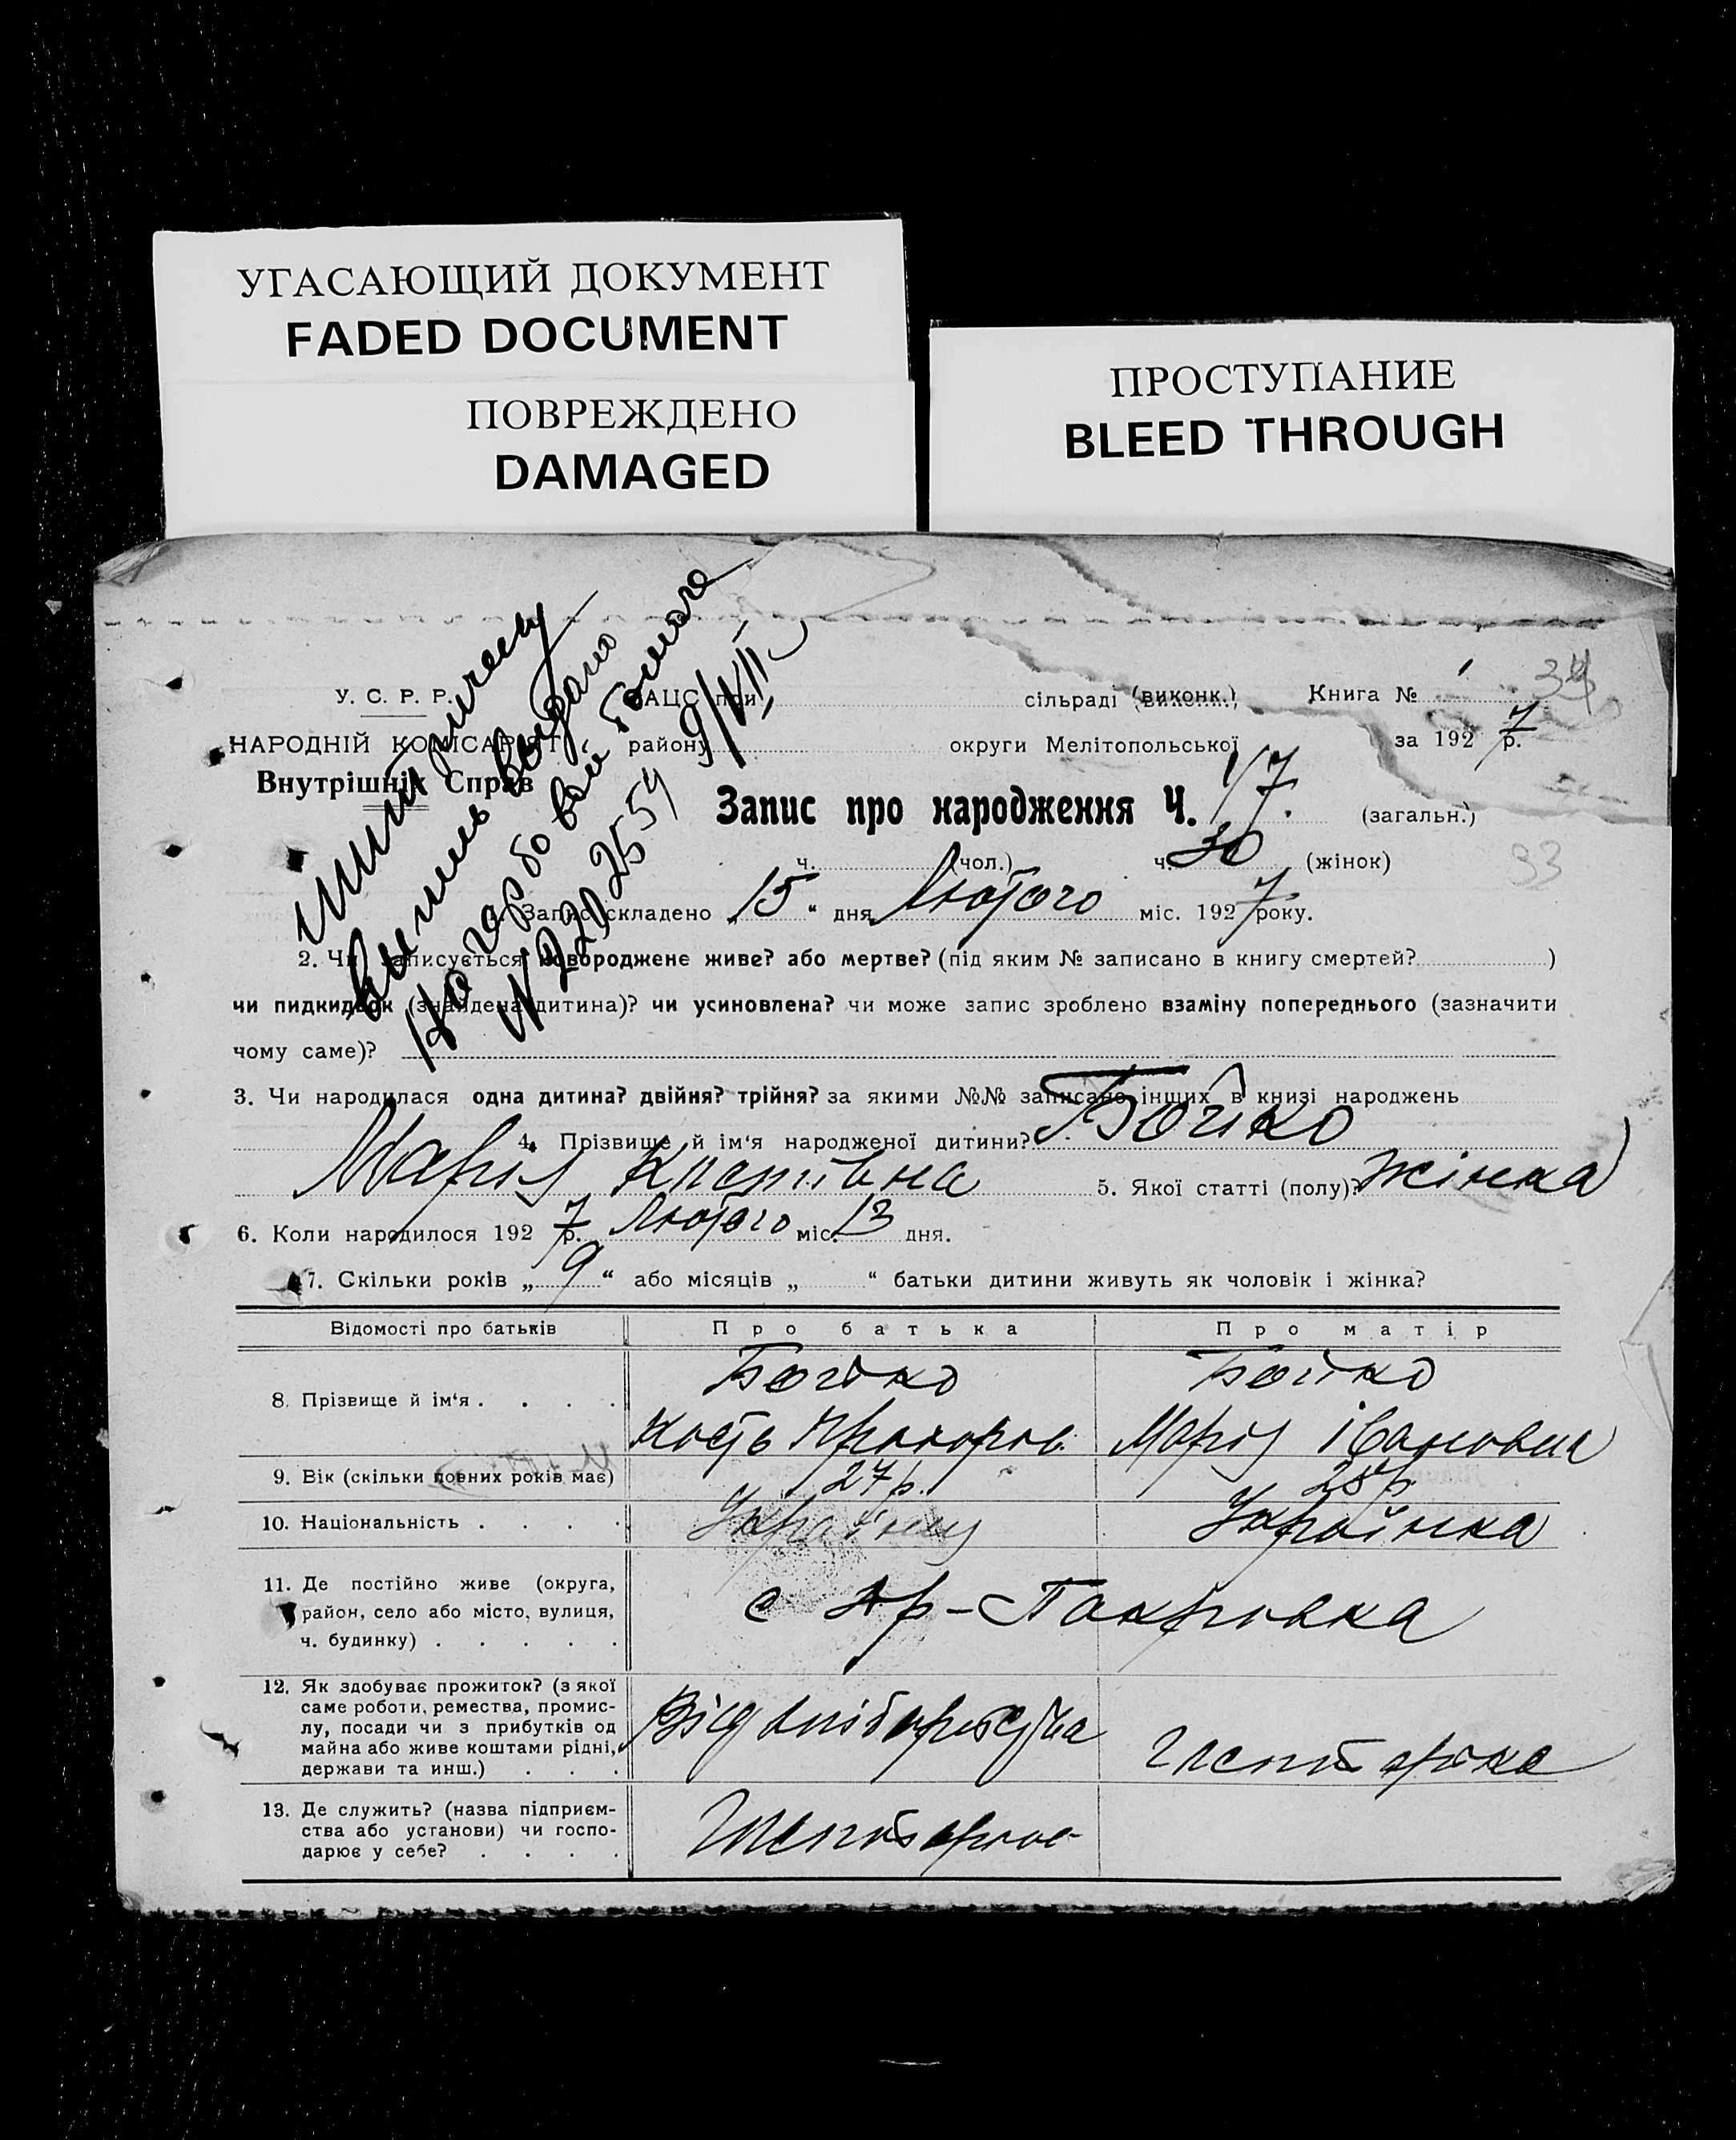 УГАСАЮЩИЙ ДОКУМЕНТ
FADED DOCUMENT
ПОВРЕЖДЕНО
DAMAGED
ПРОСТУПАНИЕ
BLEED THROUGH
У. С. Р. Р. ЗАЦС при сільраді (виконк.) Книга №
НАРОДНІЙ КОМІСАРІЯТ району округи Мелітопольської за 1927 р.
Внутрішніх Справ
Запис про народження Ч. 17. (загальн.)
ч. (чол.) ч. 30 (жінок)
93
1. Запис складено „15“ дня Лютого міс. 1927 року.
2. Чи записується новороджене живе? або мертве? (під яким № записано в книгу смертей? )
чи пидкидьок (знайдена дитина)? чи усиновлена? чи може запис зроблено взаміну попереднього (зазначити
чому саме)?
3. Чи народилася одна дитина? двійня? трійня? за якими №№ записано інших в книзі народжень
4. Прізвище й ім‘я народженої дитини? Бойко
Марія Костівна 5. Якої статті (полу)? Жінка
6. Коли народилося 1927 р. Лютого міс. 13 дня.
7. Скільки років „9“ або місяців „ “ батьки дитини живуть як чоловік і жінка?
Відомості про батьків Про батька Про матір
8. Прізвище й ім‘я . . . . Бойко Бойко
Кость Прохоров. Марія Івановна
9. Вік (скільки повних років має) 27 р. 28 р.
10. Національність . . . . Українец Українка
11. Де постійно живе (округа,
район, село або місто, вулиця,
ч. будинку) . . . . .
с -Покровка
12. Як здобуває прожиток? (з якої
саме роботи, ремества, промис-
лу, посади чи з прибутків од
майна або живе коштами рідні,
держави та инш.) . . .
Від
13. Де служить? (назва підприєм-
ства або установи) чи госпо-
дарює у себе? . . . .